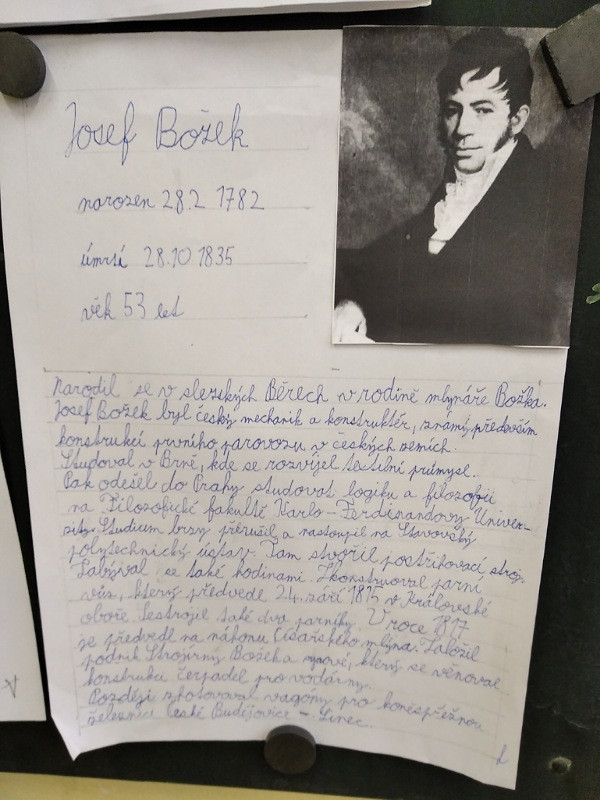 Josef Božek
narozen 28.2 1782
úmrtí 28.10 1835
věk 53 let
Narodil se v slezských Běrech v rodině mlynáře Božka.
Josef Božek byl český mechanik a konstruktér, známí, především
konstrukcí prvního parovozu v českých zemích.
Studoval v Brně, kde se rozvíjel textilní průmysl.
Pak odešel do Prahy studovat logiku a filozofii
na Filozofické fakultě Karlo-Ferdinandovy Univer-
zity. Studium brzy přerušil a nastoupil na Stavovský
polytechnický ústav. Tam stvořil postřihovací stroj.
Zabýval se také hodinami. Zkonstruoval parní
vůz, který předvedl 24. září 1815 v Královské
oboře Sestrojil také dva parníky. V roce 1817
je předvedl na náhonu Císařského mlýna. Založil
podnik Strojírny Božek a synové, který se věnoval
konstrukci čerpadel pro vodárny.
Později zhotovoval vagóny pro koněspřežnou
železnici České Budějovice - Linec.